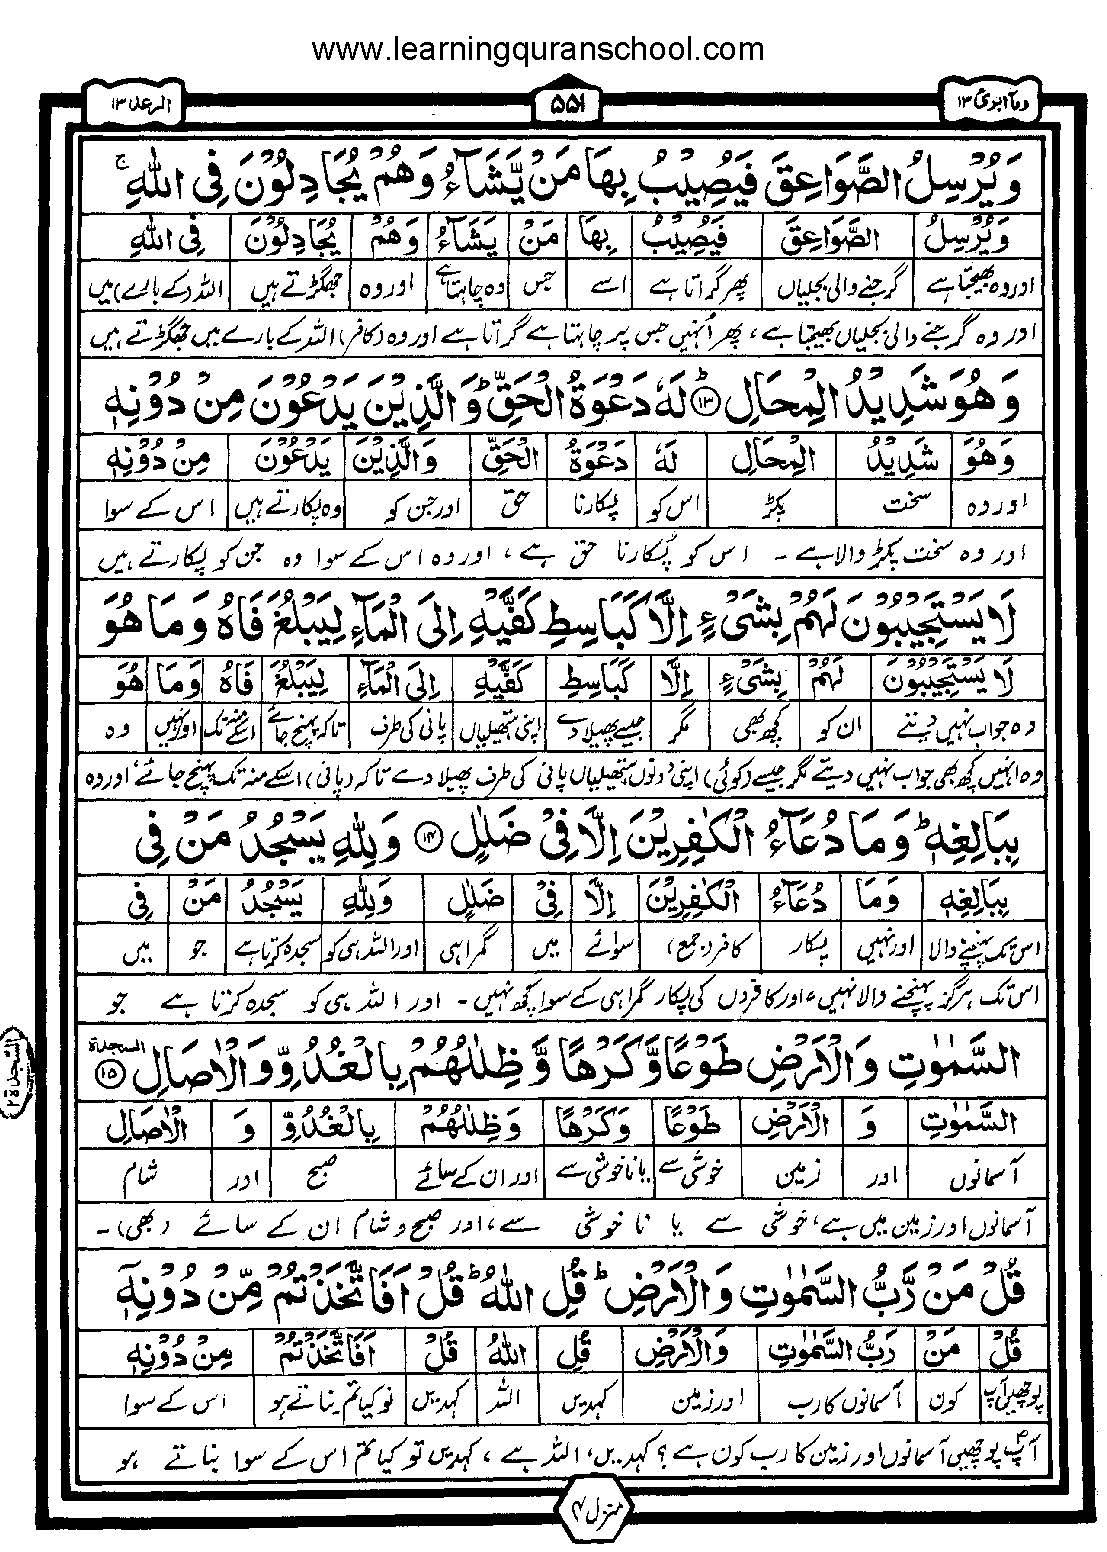 www.learningquranschool.com
الرعد ۱۳ ۵۵۱ وما ابرئ ۱۳
وَيُرْسِلُ الصَّوَاعِقَ فَيُصِيْبُ بِهَا مَنْ يَّشَآءُ وَهُمْ يُجَادِلُوْنَ فِى اللّٰهِ ۚ
وَيُرْسِلُ الصَّوَاعِقَ فَيُصِيْبُ بِهَا مَنْ يَشَآءُ وَهُمْ يُجَادِلُوْنَ فِى اللّٰهِ
اور وہ بھیجتا ہے گرجنے والی بجلیاں پھر گراتا ہے اسے جس وہ چاہتا ہے اور وہ جھگڑتے ہیں اللہ (کے بارے) میں
اور وہ گرجنے والی بجلیاں بھیجتا ہے، پھر اُنہیں جس پر چاہتا ہے گراتا ہے اور وہ (کافر) اللہ کے بارے میں جھگڑتے ہیں
وَهُوَ شَدِيْدُ الْمِحَالِ ؕ ۱۳ لَهٗ دَعْوَةُ الْحَقِّ ؕ وَالَّذِيْنَ يَدْعُوْنَ مِنْ دُوْنِهٖ
وَهُوَ شَدِيْدُ الْمِحَالِ لَهٗ دَعْوَةُ الْحَقِّ وَالَّذِيْنَ يَدْعُوْنَ مِنْ دُوْنِهٖ
اور وہ سخت پکڑ اس کو پکارنا حق اور جن کو وہ پکارتے ہیں اس کے سوا
اور وہ سخت پکڑ والا ہے ۔ اس کو پُکارنا حق ہے، اور وہ اس کے سوا وہ جن کو پکارتے ہیں
لَا يَسْتَجِيْبُوْنَ لَهُمْ بِشَىْءٍ اِلَّا كَبَاسِطِ كَفَّيْهِ اِلَى الْمَآءِ لِيَبْلُغَ فَاهُ وَمَا هُوَ
لَا يَسْتَجِيْبُوْنَ لَهُمْ بِشَىْءٍ اِلَّا كَبَاسِطِ كَفَّيْهِ اِلَى الْمَآءِ لِيَبْلُغَ فَاهُ وَمَا هُوَ
وہ جواب نہیں دیتے ان کو کچھ بھی مگر جیسے پھیلا دے اپنی ہتھیلیاں پانی کی طرف تاکہ پہنچ جائے اسکے منہ تک اور نہیں وہ
وہ انہیں کچھ بھی جواب نہیں دیتے مگر جیسے (کوئی) اپنی دونوں ہتھیلیاں پانی کی طرف پھیلا دے تاکہ (پانی) اسکے منہ تک پہنچ جائے، اور وہ
بِبَالِغِهٖ ؕ وَمَا دُعَآءُ الْكٰفِرِيْنَ اِلَّا فِىْ ضَلٰلٍ ۱۴ وَلِلّٰهِ يَسْجُدُ مَنْ فِى
بِبَالِغِهٖ وَمَا دُعَآءُ الْكٰفِرِيْنَ اِلَّا فِىْ ضَلٰلٍ وَلِلّٰهِ يَسْجُدُ مَنْ فِى
اس تک پہنچنے والا اور نہیں پکار کافر (جمع) سوائے میں گمراہی اور اللہ ہی کو سجدہ کرتا ہے جو میں
اس تک ہرگز پہنچنے والا نہیں، اور کافروں کی پکار گمراہی کے سوا کچھ نہیں ۔ اور اللہ ہی کو سجدہ کرتا ہے جو
السَّمٰوٰتِ وَالْاَرْضِ طَوْعًا وَّكَرْهًا وَّظِلٰلُهُمْ بِالْغُدُوِّ وَالْاٰصَالِ ۱۵ السجدة
السجدة ۲
السَّمٰوٰتِ وَ الْاَرْضِ طَوْعًا وَكَرْهًا وَظِلٰلُهُمْ بِالْغُدُوِّ وَ الْاٰصَالِ
آسمانوں اور زمین خوشی سے یا ناخوشی سے اور ان کے سائے صبح اور شام
آسمانوں اور زمین میں ہے، خوشی سے یا نا خوشی سے، اور صبح و شام ان کے سائے (بھی) ۔
قُلْ مَنْ رَّبُّ السَّمٰوٰتِ وَالْاَرْضِ ؕ قُلِ اللّٰهُ ؕ قُلْ اَفَاتَّخَذْتُمْ مِّنْ دُوْنِهٖۤ
قُلْ مَنْ رَبُّ السَّمٰوٰتِ وَالْاَرْضِ قُلِ اللّٰهُ قُلْ اَفَاتَّخَذْتُمْ مِنْ دُوْنِهٖ
پوچھیں آپ کون آسمانوں کا رب اور زمین کہدیں اللہ کہدیں تو کیا تم بناتے ہو اس کے سوا
آپؐ پوچھیں آسمانوں اور زمین کا رب کون ہے؟ کہدیں، اللہ ہے، کہدیں تو کیا تم اس کے سوا بناتے ہو
منزل ۳